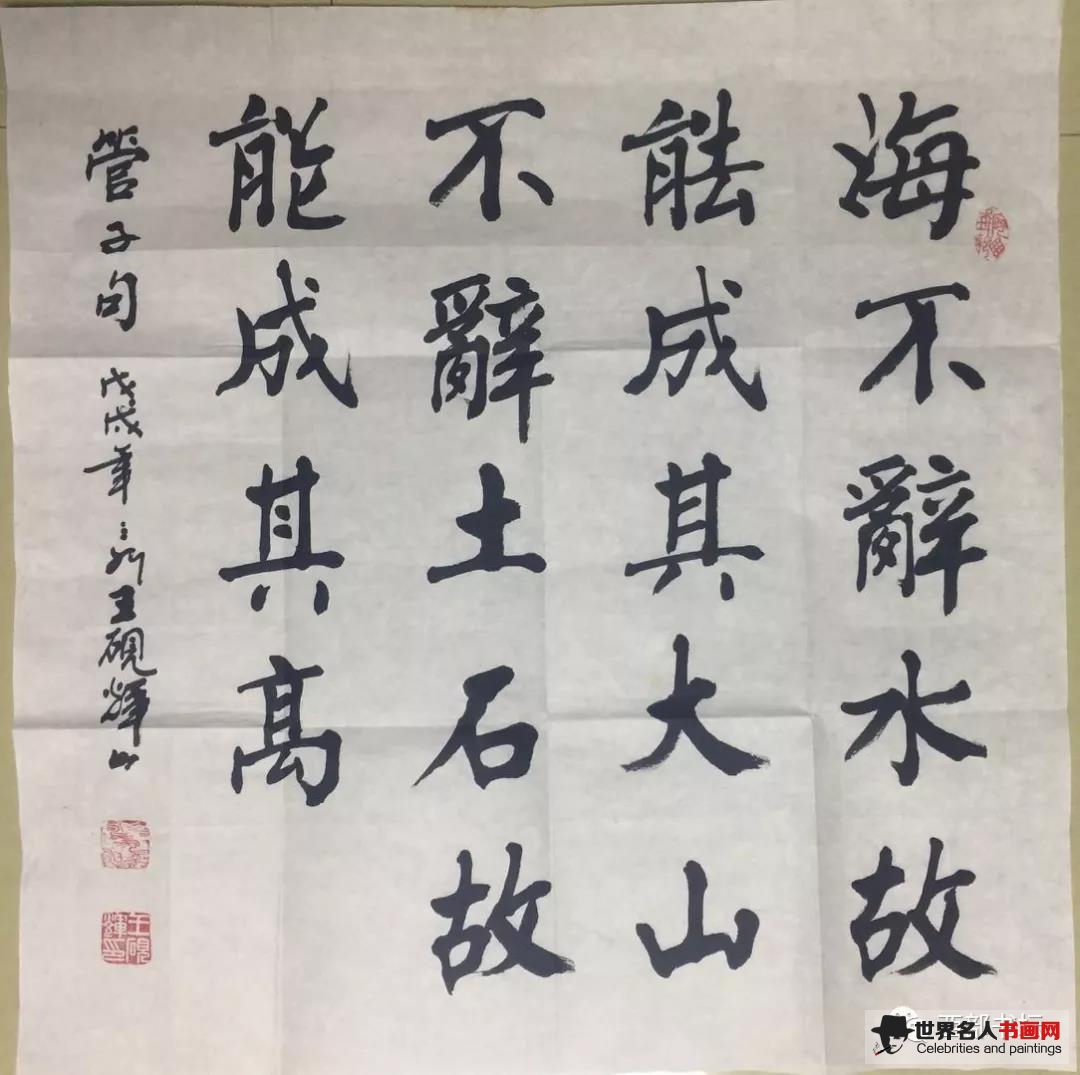 海不辭水故
能成其大山
不辭土石故
能成其高
管子句 戊戌年 王硯輝
王硯輝印
世界名人书画网
Celebrities and paintings